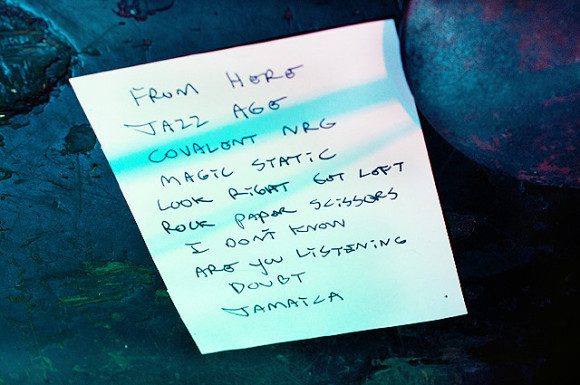 FROM HERE
JAZZ AGE
COVALENT NRG
MAGIC STATIC
LOOK RIGHT GET LEFT
ROCK PAPER SCISSORS
I DON'T KNOW
ARE YOU LISTENING
DOUBT
JAMAICA